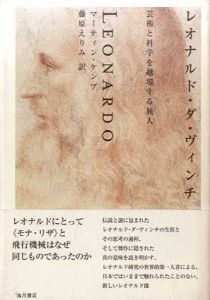 レオナルド・ダ・ヴィンチ
芸術と科学を越境する旅人
LEONARDO
マーティン・ケンプ
藤原えりみ 訳
レオナルドにとって
《モナ・リザ》と
飛行機械はなぜ
同じものであったのか
伝説と謎に包まれた
レオナルド・ダ・ヴィンチの生涯と
その思考の過程、
そして傑作に隠された
真の意味を説き明かす。
レオナルド研究の世界的第一人者による、
日本ではいままで触れられたことのない、
新しいレオナルド像
大月書店